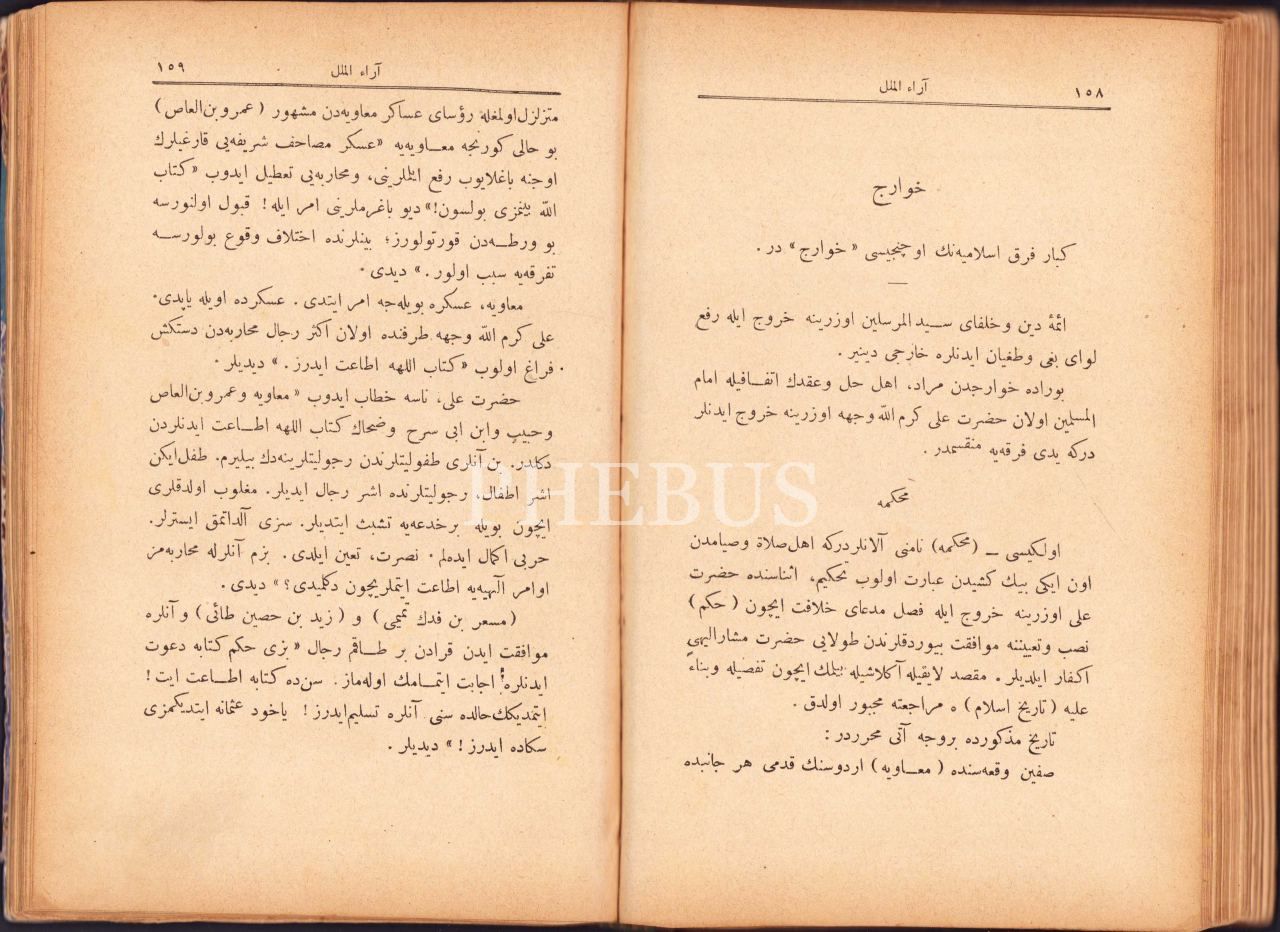 ١٥٨
آراء الملل
خوارج
كبار فرق اسلاميه‌نك اوچنجيسى « خوارج » در .
ائمهٔ دين و خلفاى سـيد المرسلين اوزرينه خروج ايله رفع
لواى بغى و طغيان ايدنلره خارجى دينير .
بوراده خوارجدن مراد، اهل حل و عقدك اتفـاقيله امام
المسلمين اولان حضرت على كرم الله وجهه اوزرينه خروج ايدنلر
دركه يدى فرقه‌يه منقسمدر .
محكمه
اولكيسى ــ (محكمه) نامنى آلانلردركه اهل صلاة و صيامدن
اون ايكى بيك كشيدن عبارت اولوب تحكيم، اثناسنده حضرت
على اوزرينه خروج ايله فصل مدعاى خلافت ايچون ( حكم )
نصب و تعييننه موافقت بيوردقلرندن طولايى حضرت مشاراليهى
اكفار ايلديلر . مقصد لايقيله آكلاشيله بيلمك ايچون تفصيله و بناء
عليه ( تاريخ اسلام ) ه مراجعته مجبور اولدق .
تاريخ مذكورده بروجه آتى محرردر :
صفين وقعه‌سنده ( معـاويه ) اردوسنك قدمى هر جانبده
١٥٩
آراء الملل
متزلزل اولمغله رؤساى عساكر معاويه‌دن مشهور ( عمرو بن العاص )
بو حالى كورنجه معـاويه‌يه « عسكر مصاحف شريفه‌يى قارغيلرك
اوجنه باغلايوب رفع ايتملرينى، و محاربه‌يى تعطيل ايدوب « كتاب
الله بينمزى بولسون! » ديو باغرملرينى امر ايله ! قبول اولنورسه
بو ورطـه‌دن قورتولورز؛ بينلرنده اختلاف وقوع بولورسـه
تفرقه‌يه سبب اولور . » ديدى .
معاويه، عسكره بويله‌جه امر ايتدى . عسكرده اويله ياپدى .
على كرم الله وجهه طرفنده اولان اكثر رجال محاربه‌دن دستكش
فراغ اولوب « كتاب اللهه اطاعت ايدرز . » ديديلر .
حضرت على، ناسه خطاب ايدوب « معاويه و عمرو بن العاص
و حبيب و ابن ابى سرح و ضحاك كتاب اللهه اطـاعت ايدنلردن
دكلدر. بن آنلرى طفوليتلرندن رجوليتلرينه‌دك بيليرم. طفل ايكن
اشر اطفال، رجوليتلرنده اشر رجال ايديلر. مغلوب اولدقلرى
ايچون بويله بر خدعه‌يه تشبث ايتديلر. سزى آلداتمق ايسترلر.
حربى اكمال ايده‌لم . نصرت، تعين ايلدى . بزم آنلرله محاربه‌مز
اوامر آلهيه‌يه اطاعت ايتملريچون دكلميدى؟ » ديدى .
( مسعر بن فدك تميمى ) و ( زيد بن حصين طائى ) و آنلره
موافقت ايدن قرادن بر طـاقم رجال « بزى حكم كتابه دعوت
ايدنلره اجابت ايتمـامك اوله‌ماز . سن‌ده كتابه اطـاعت ايت !
ايتمديكك حالده سنى آنلره تسليم ايدرز ! ياخود عثمانه ايتديكمزى
سكاده ايدرز ! » ديديلر .
PHEBUS